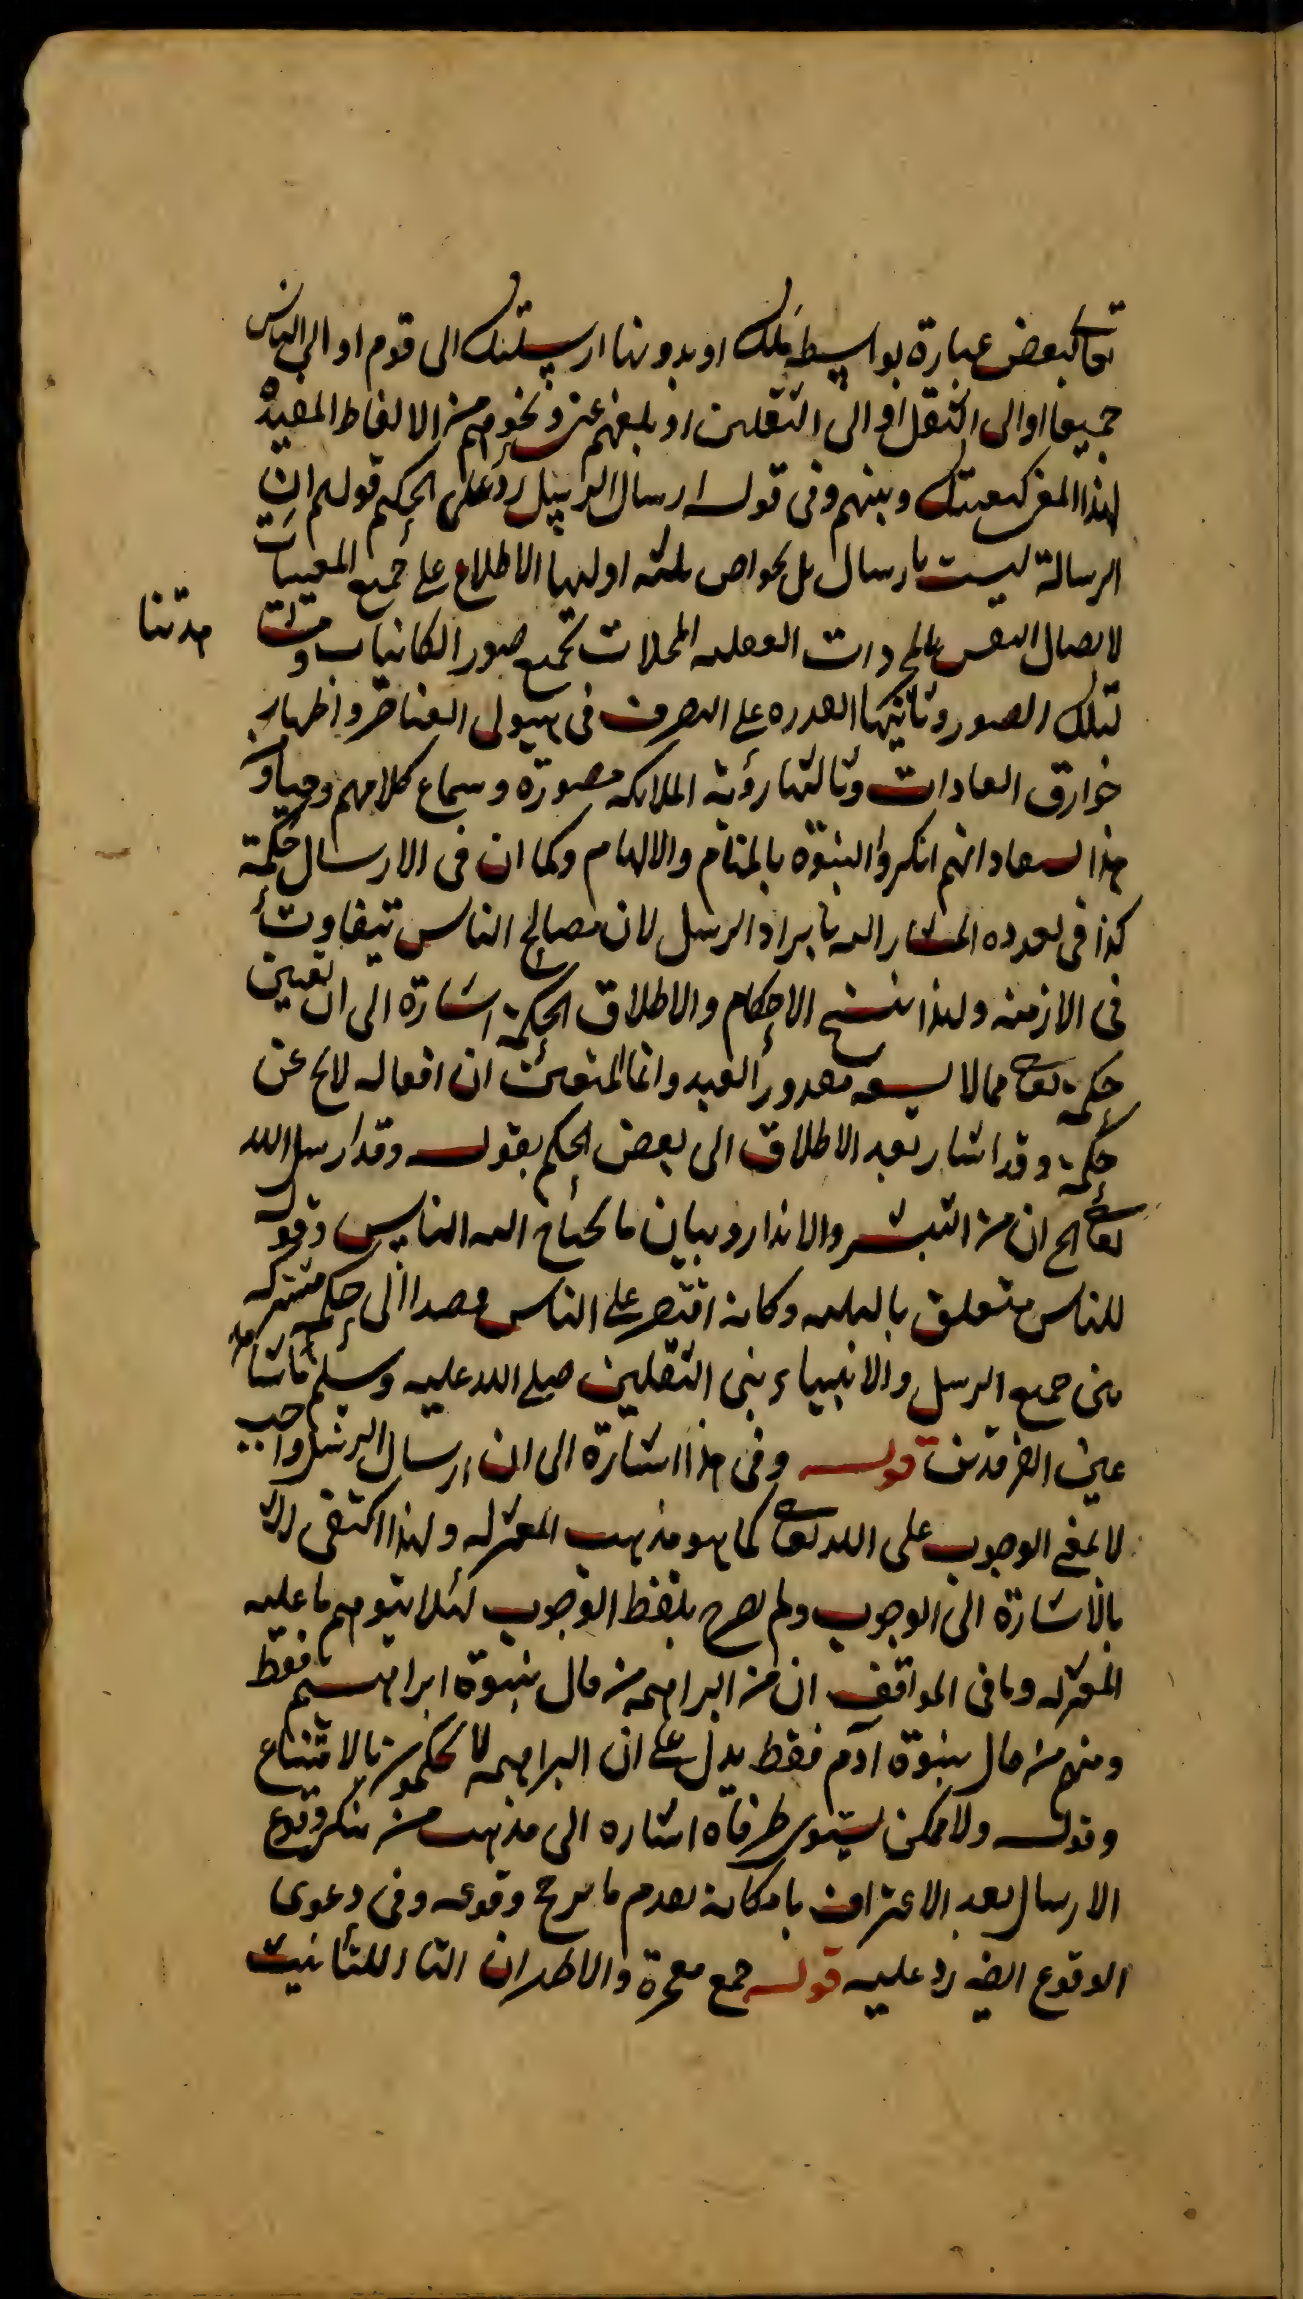 تعالى لبعض عباره بواسطة ملك او بدونها ارسلتك الى قوم او الى الناس
جميعا او الى الثقلين او بلغهم عنى ونحوهم من الالفاظ المفيدة
لهذا المعنى كبعثتك وبينهم وفى قوله ارسال الرسل رد على الحكيم قولهم ان
الرسالة ليست بارسال بل بخواص ثلثه اوليها الاطلاع على جميع المغيبات
لاتصال النفس بالمجردات العقليه المحلات بجميع صور الكائنات
تلك الصور وثانيها القدره على التصرف فى هيولى العناصر واظهار
خوارق العادات وثالثها رؤية الملائكه مصورة وسماع كلامهم وحيا و
هذا انهم انكروا النبوة بالمنام والالهام وكما ان فى الارسال حكمة
كذا فى تعدده المشار اليه بايراد الرسل لان مصالح الناس تتفاوت
فى الازمنه ولهذا ينسخ الاحكام والاطلاق الحكمة اشارة الى ان تعيين
حكمة تعالى مما لا يسعه مقدور العبد وانما المتعين ان افعاله لا يخ عن
حكمة وقد اشار بعد الاطلاق الى بعض الحكم بقوله وقد ارسل الله
تعالى الخ ان من التبشير والانذار وبيان ما يحتاج اليه الناس وقوله
للناس متعلق بالثلثه وكانه اقتصر على الناس قصدا الى حكمة مشتركه
بين جميع الرسل والانبياء نبى الثقلين صلى الله عليه وسلم
عين الفرقدين قوله وفى هذا اشارة الى ان ارسال الرسل واجب
لا بمعنى الوجوب على الله تعالى كما هو مذهب المعتزله ولهذا اكتفى
بالاشارة الى الوجوب ولم يصرح بلفظ الوجوب لئلا يتوهم ما عليه
المعتزله وما فى المواقف ان من البراهمه من قال بنبوة ابراهيم فقط
ومنهم من قال بنبوة آدم فقط يدل على ان البراهمه لا يحكمون بالامتناع
وقوله ولا ممكن يستوى طرفاه اشاره الى مذهب من ينكر وقوع
الارسال بعد الاعتراف بامكانه لعدم ما يرجح وقوعه وفى دعوى
الوقوع ايضا رد عليه قوله جمع معجزة والاظهر ان التا للتأنيث